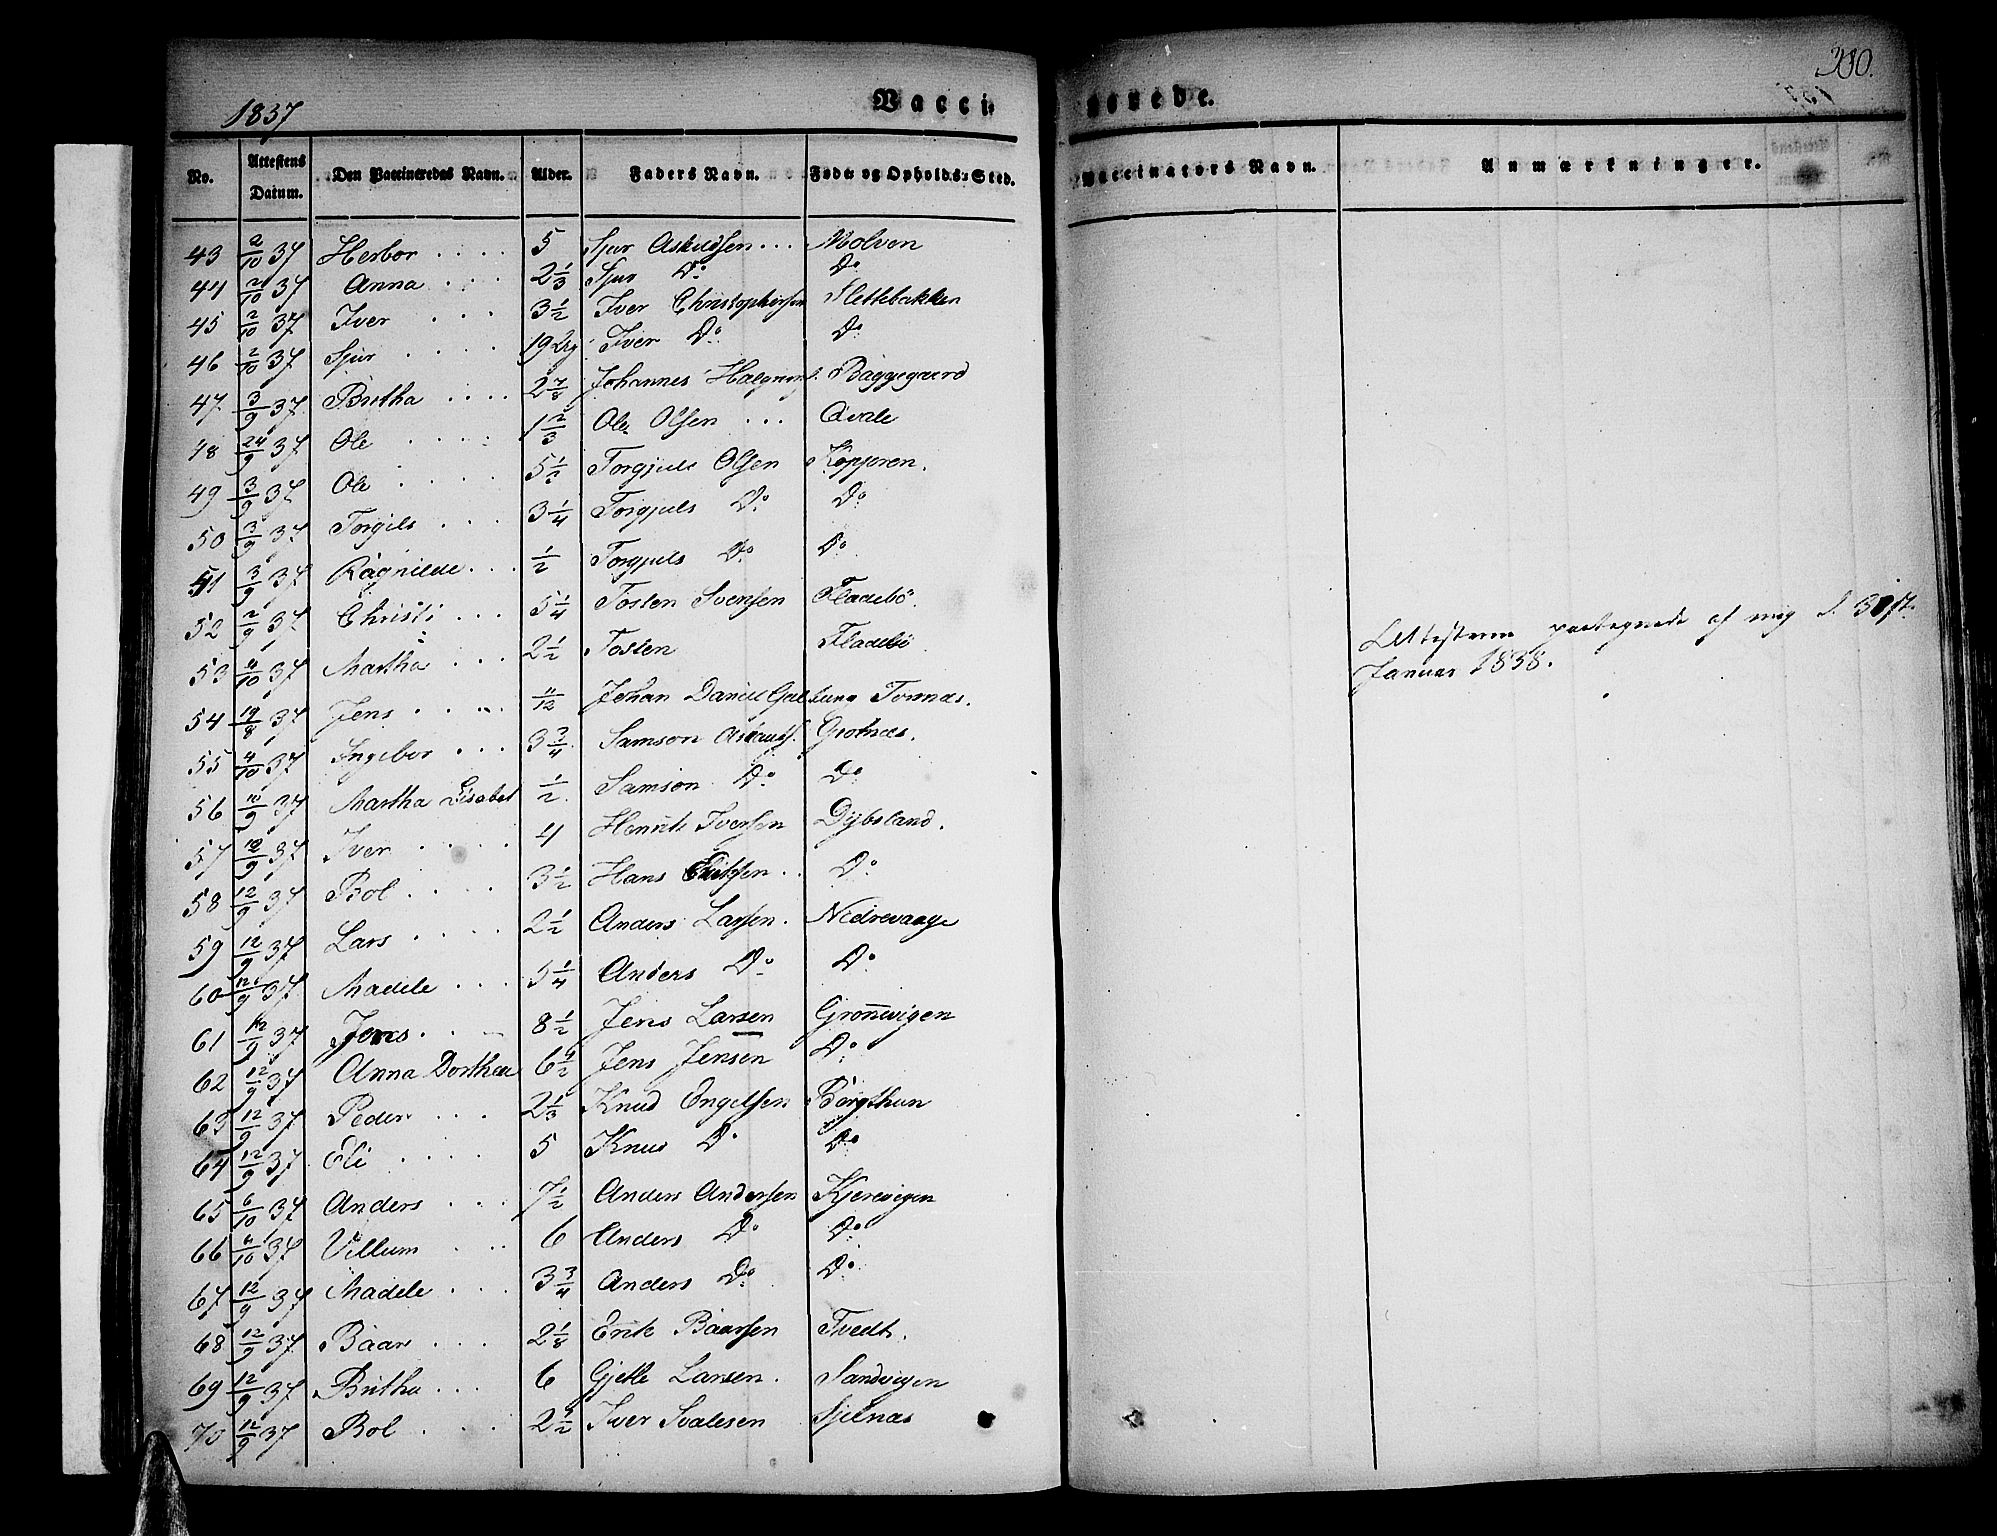 1837
Vacci
nerede.
300.
No. Attestens Datum. Den Vaccineredes Navn. Alder. Faders Navn. Føde- og Opholds-Sted. Vaccinators Navn. Anmærkninger.
43 2/10 37 Herbor . . . . 5 Sjur Askildsen . . . Molven
44 2/10 37 Anna . . . 2 1/3 Sjur Do Do
45 2/10 37 Iver . . . 3 1/2 Iver Christophersen Slettebakken
46 2/10 37 Sjur . . . . Iver Do Do
47 3/9 37 Britha . . . . 2 7/8 Johannes Baggegaard
48 24/9 37 Ole . . . . 1 2/3 Ole Olsen . . . Qvale
49 3/9 37 Ole . . . . 5 1/2 Torgjuls Olsen Kopperen.
50 3/9 37 Torgils . . . 3 1/4 Torgjuls Do Do
51 3/9 37 Ragnilde . . . 1/2 Torgjuls Do Do
52 2/9 37 Christi . . . 5 1/4 Tosten Svensen Fladebö.
53 4/10 37 Martha . . . 2 1/2 Tosten Fladebö
54 19/8 37 Jens . . . . 11/12 Johan Daniel Tornæs.
55 4/10 37 Ingebor . . . 3 3/4 Samson Grotnæs.
56 10/9 37 Martha Lisabet 1/2. Samson Do Do
57 12/9 37 Iver . . . . 4 Henrik Iversen Dybsland.
58 12/9 37 Bol . . . . 3 1/2 Hans Eriksen . . Do
59 12/9 37 Lars . . . . 2 1/2 Anders Larsen . Nedrevaage
60 12/9 37 Madele . . . 5 1/4 Anders Do Do
61 12/9 37 Jens . . . 8 1/2 Jens Larsen Gronnvigen
62 12/9 37 Anna Dorthea Jens Jensen Do
63 12/9 37 Peder . . . 2 1/3 Knud Engelsen Börgthun
64 12/9 37 Eli . . . . 5 Knud Do Do
65 6/10 37 Anders . . . 7 1/2 Anders Andersen Kjerevigen
66 6/10 37 Villum . . . 6 Anders Do Do
67 12/9 37 Madele . . . 3 3/4 Anders Do Do
68 12/9 37 Baar . . . 2 1/8 Erik Baarsen Tvedt.
69 12/9 37 Britha . . . 6 Gjetle Larsen . Sandvigen
70 12/9 37 Bol . . . Iver Svalesen Sjelnæs
Attesterne paategnede af mig d. 31st.
Januar 1838.